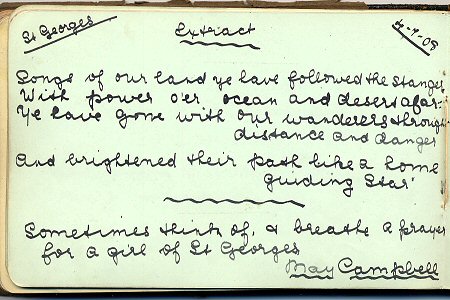 St Georges
Extract
4-9-09
Songs of our land ye have followed the stanger
With power o'er ocean and desert afar.
Ye have gone with our wanderers through
distance and danger
And brightened their path like a home
Guiding Star
Sometimes think of, & breathe a prayer
for a girl of St Georges
May Campbell